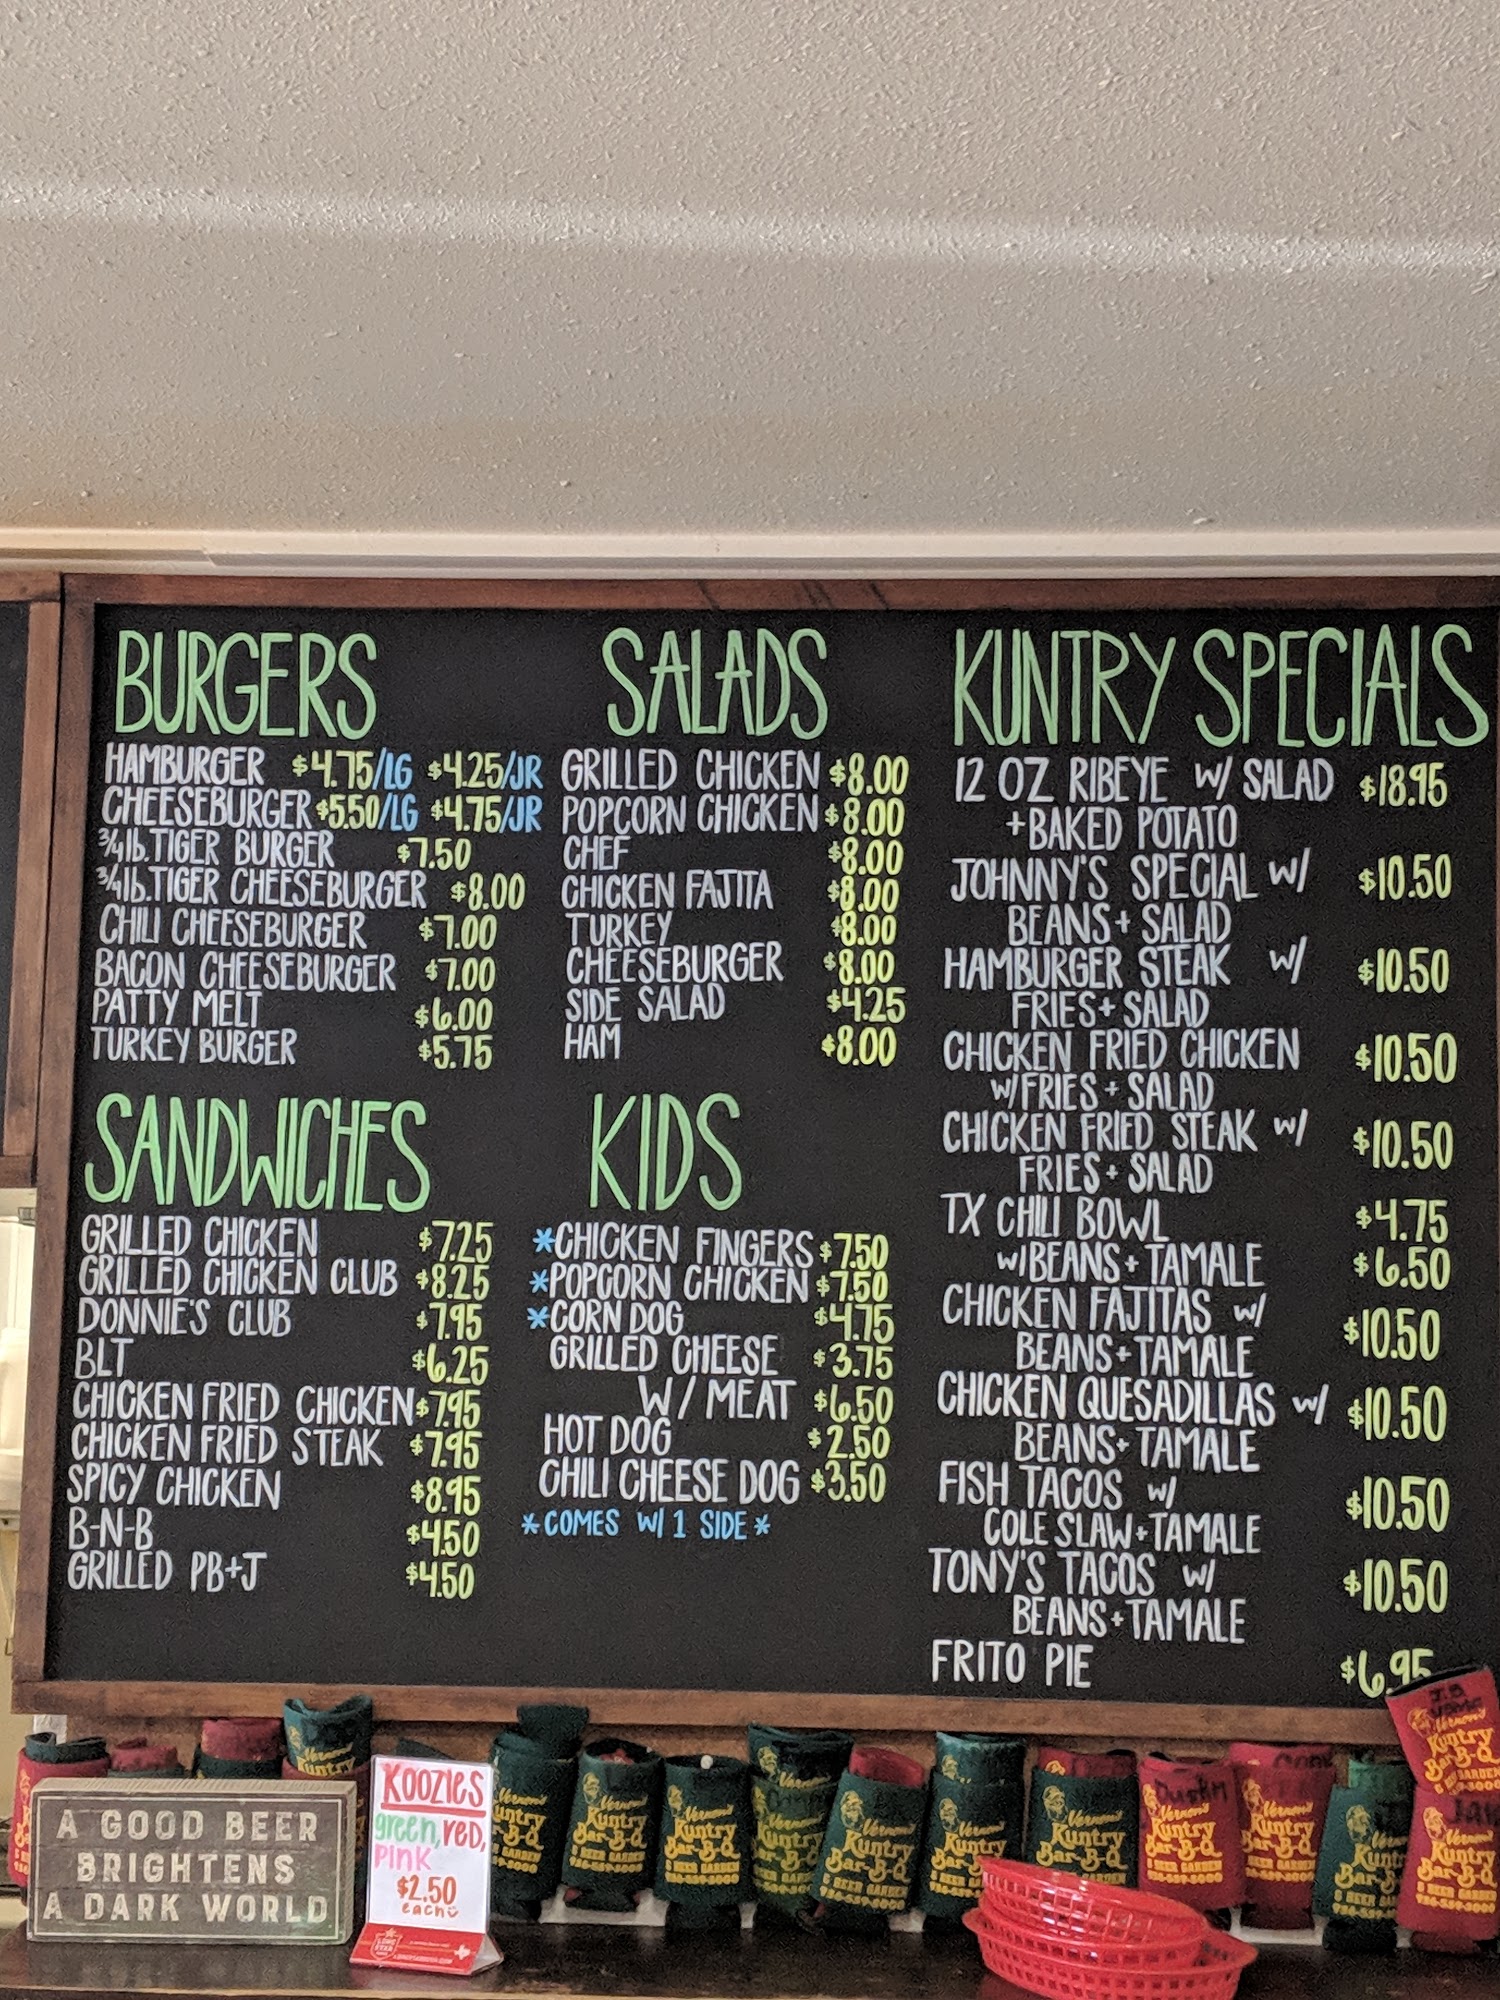 BURGERS
HAMBURGER $4.75/LG $4.25/JR
CHEESEBURGER $5.50/LG $4.75/JR
3/4 lb. TIGER BURGER $7.50
3/4 lb. TIGER CHEESEBURGER $8.00
CHILI CHEESEBURGER $7.00
BACON CHEESEBURGER $7.00
PATTY MELT $6.00
TURKEY BURGER $5.75
SANDWICHES
GRILLED CHICKEN $7.25
GRILLED CHICKEN CLUB $8.25
DONNIE'S CLUB $7.95
BLT $6.25
CHICKEN FRIED CHICKEN $7.95
CHICKEN FRIED STEAK $7.95
SPICY CHICKEN $8.95
B-N-B $4.50
GRILLED PB+J $4.50
SALADS
GRILLED CHICKEN $8.00
POPCORN CHICKEN $8.00
CHEF $8.00
CHICKEN FAJITA $8.00
TURKEY $8.00
CHEESEBURGER $8.00
SIDE SALAD $4.25
HAM $8.00
KIDS
*CHICKEN FINGERS $7.50
*POPCORN CHICKEN $7.50
*CORN DOG $4.75
GRILLED CHEESE $3.75
W/ MEAT $6.50
HOT DOG $2.50
CHILI CHEESE DOG $3.50
*COMES W/ 1 SIDE*
KUNTRY SPECIALS
12 OZ RIBEYE W/ SALAD $18.95
+BAKED POTATO
JOHNNY'S SPECIAL W/ $10.50
BEANS+ SALAD
HAMBURGER STEAK W/ $10.50
FRIES+ SALAD
CHICKEN FRIED CHICKEN $10.50
W/FRIES + SALAD
CHICKEN FRIED STEAK W/ $10.50
FRIES+ SALAD
TX CHILI BOWL $4.75
W/BEANS+TAMALE $6.50
CHICKEN FAJITAS W/ $10.50
BEANS+TAMALE
CHICKEN QUESADILLAS W/ $10.50
BEANS+TAMALE
FISH TACOS W/ $10.50
COLE SLAW+TAMALE
TONY'S TACOS W/ $10.50
BEANS+TAMALE
FRITO PIE $6.95
A GOOD BEER
BRIGHTENS
A DARK WORLD
KOOZIES
green, red,
pink
$2.50
each
Vernon's
Kuntry
Bar-B-Q
& BEER GARDEN
Dustin